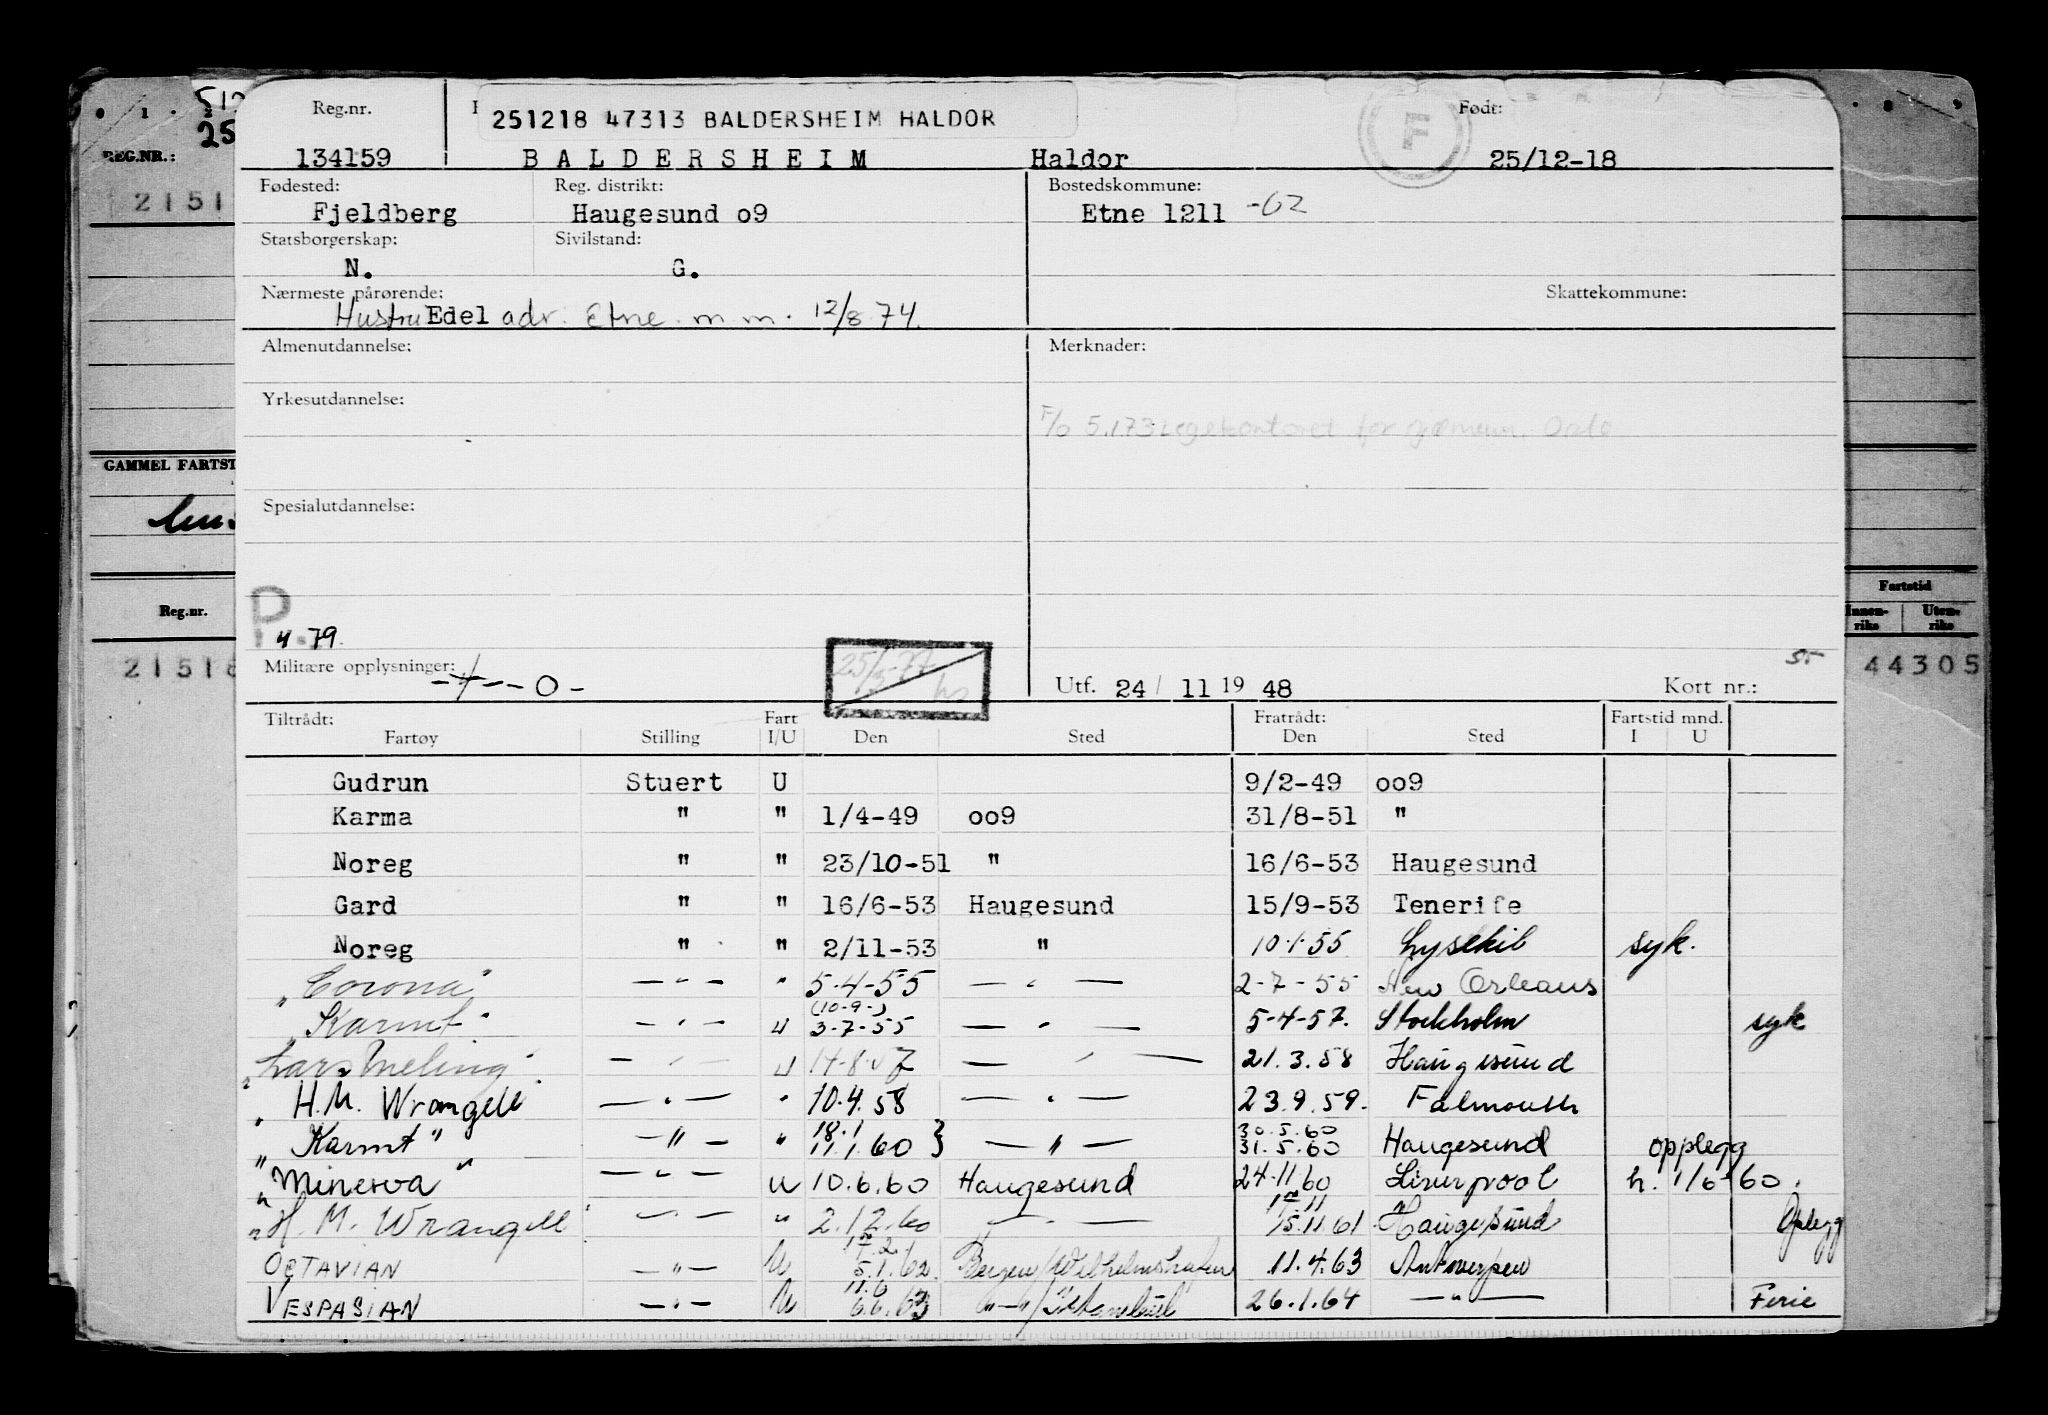 0 1 512 8 9
Reg.nr. 25 251218 47313 BALDERSHEIM HALDOR F Født:
REG.NR.: 134159 BALDERSHEIM Haldor 25/12-18
Fødested: Reg. distrikt: Bostedskommune:
2151 Fjeldberg Haugesund o9 Etne 1211 -62
Statsborgerskap: Sivilstand:
N. G.
Nærmeste pårørende: Skattekommune:
Hustru Edel adr. Etne m.m. 12/8 74.
Almenutdannelse: Merknader:
Yrkesutdannelse:
F/O 5.173 Legekontoret for sjømenn. Oslo
GAMMEL FARTST
Spesialutdannelse:
Fartstid
Reg.nr. P Innen-riks Uten-riks
4.79.
21518 Militære opplysninger: -+--0- 25/3-77 Utf. 24/ 11 19 48 Kort nr.: 44305
Tiltrådt: Fart Fratrådt: Fartstid mnd.
Fartøy Stilling I/U Den Sted Den Sted I U
Gudrun Stuert U 9/2-49 oo9
Karma " " 1/4-49 oo9 31/8-51 "
Noreg " " 23/10-51 " 16/6-53 Haugesund
Gard " " 16/6-53 Haugesund 15/9-53 Tenerife
Noreg " " 2/11-53 " 10.1.55 Lysekil syk.
"Corona" —"— " 5-4-55 — " — 2-7-55 New Orleans
(10-9-)
"Karmt" —"— U 3-7-55 — " — 5-4-57. Stockholm syk
"Lars Meling" — " — U 14.8.57 — " — 21.3.58 Haugesund
" H.M. Wrangell — " — " 10.4.58 — " — 23.9.59. Falmouth
18.1 30.5.60
"Karmt" —"— " 11.1.60 } —"— 31.5.60 Haugesund opplegg
"Minerva" —"— U 10.6.60 Haugesund 24.11.60 Liverpool h. 1/6-60.
"H. M. Wrangell —"— " 2.12.60 —"— 15.11.61 Haugesund Oplegg
OCTAVIAN —"— U 5.1.62. Bergen/Wilhelmshafen 11.4.63 Antwerpen
11.6
VESPASIAN —"— U 6.6.63 "—"/ 26.1.64 —"— Ferie